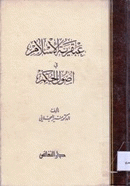 عبقرية الإسلام
في
أصول الحكم
تأليف
دكتور منير العجلاني
دار النفائس